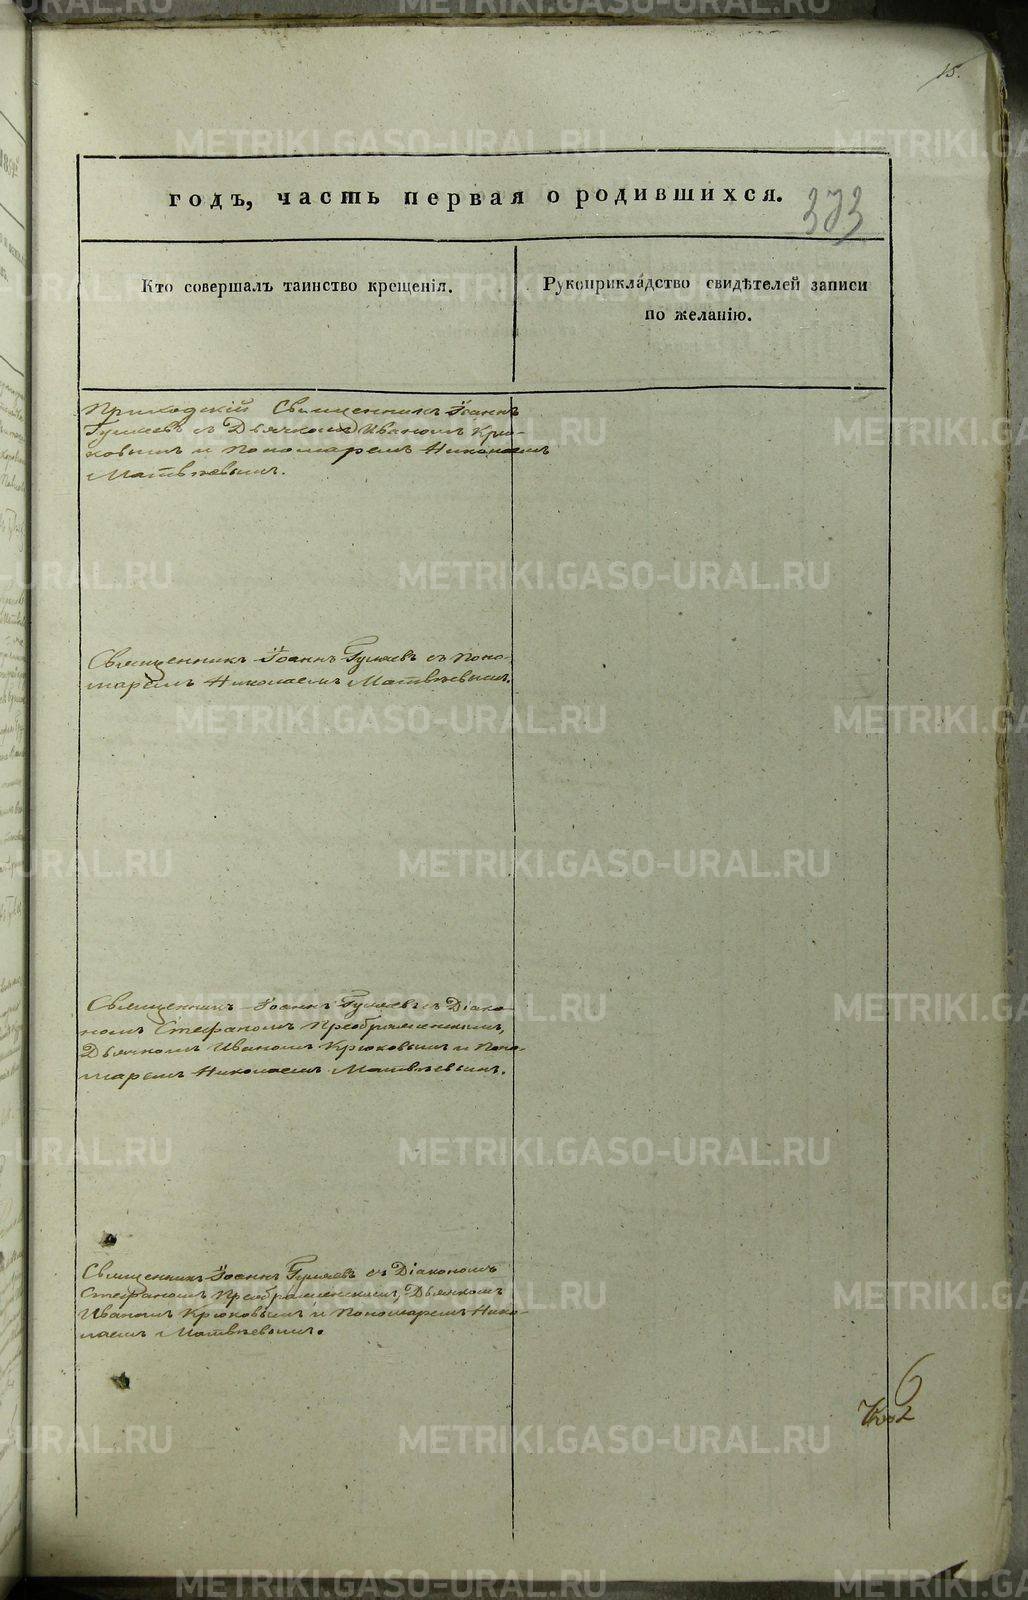 15.
годъ, часть первая о родившихся.
373
Кто совершалъ таинство крещенія.
Рукоприкладство свидѣтелей записи
по желанію.
Приходскій Священникъ Іоаннъ
Гуляевъ съ Дьячкомъ Иваномъ Крю-
ковымъ и Пономаремъ Николаемъ
Матвѣевымъ.
Священникъ Іоаннъ Гуляевъ съ Поно-
маремъ Николаемъ Матвѣевымъ.
Священникъ Іоаннъ Гуляевъ съ Діако-
номъ Стефаномъ Преображенскимъ,
Дьячкомъ Иваномъ Крюковымъ и Поно-
маремъ Николаемъ Матвѣевымъ.
Священникъ Іоаннъ Гуляевъ съ Діакономъ
Стефаномъ Преображенскимъ, Дьячкомъ
Иваномъ Крюковымъ и Пономаремъ Нико-
лаемъ Матвѣевымъ.
METRIKI.GASO-URAL.RU